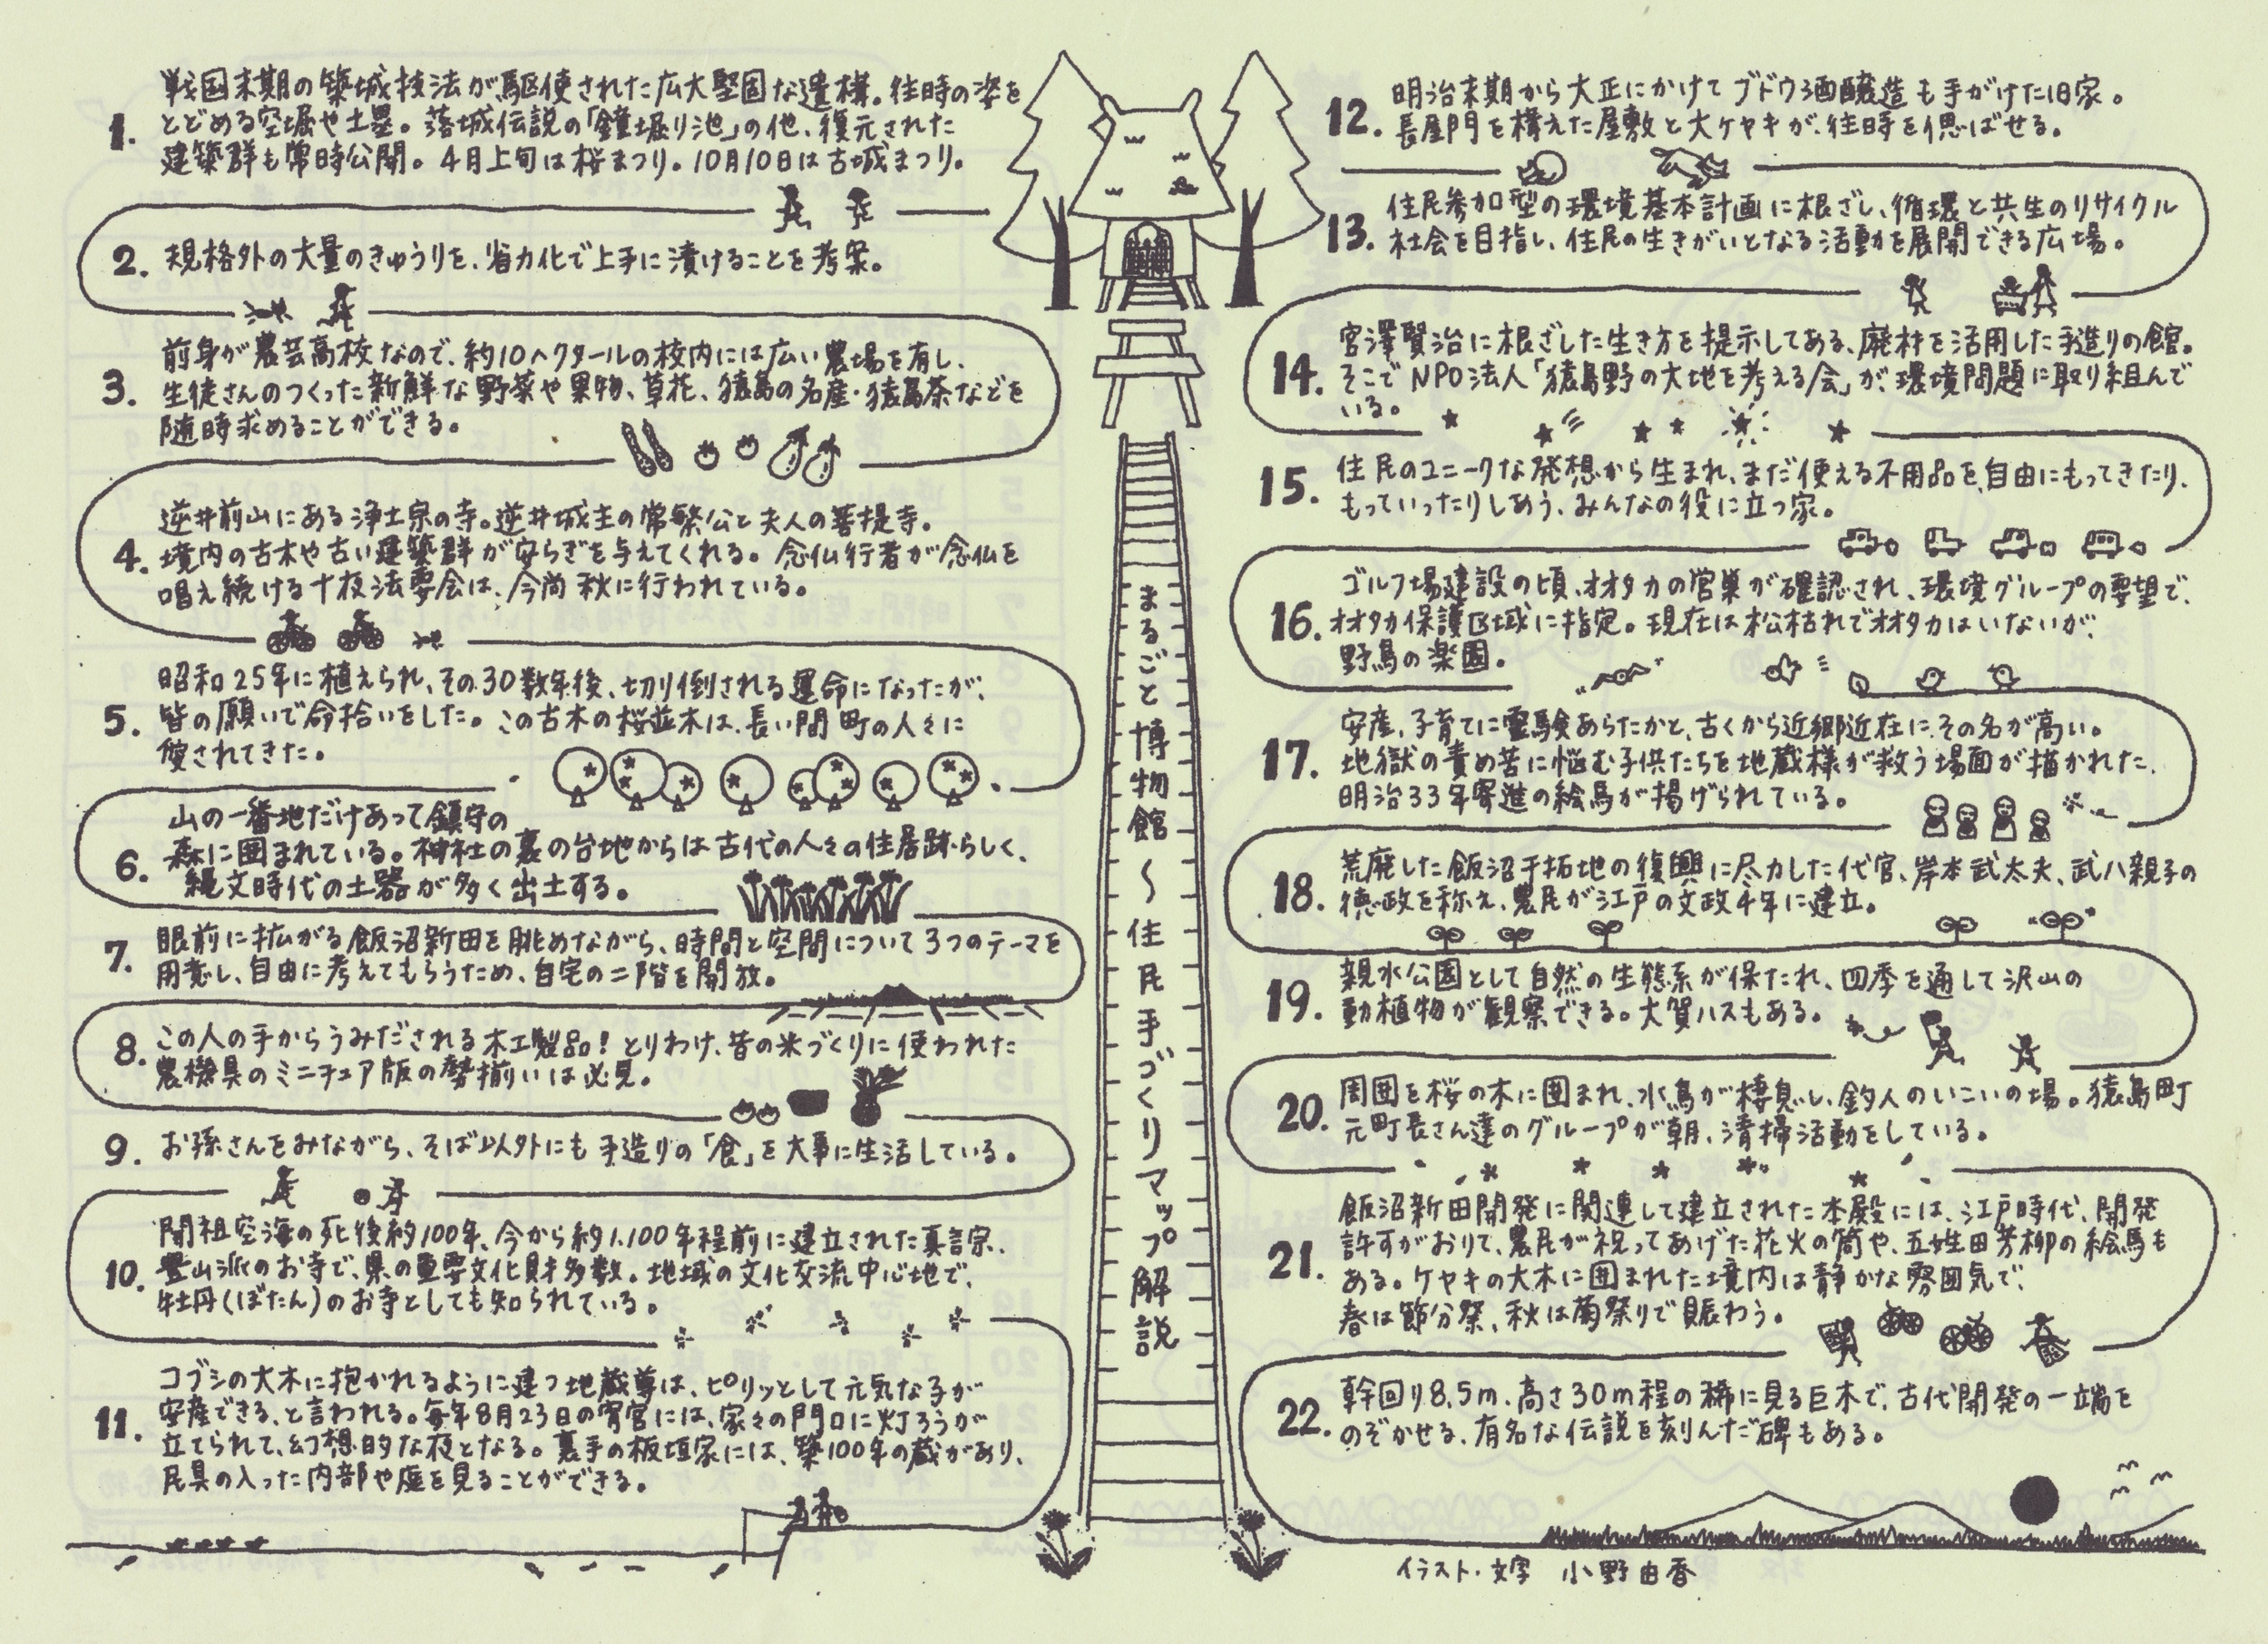 1. 戦国末期の築城技法が駆使された広大堅固な遺構。往時の姿を
とどめる空堀や土塁。落城伝説の「鐘堀り池」の他、復元された
建築群も常時公開。4月上旬は桜まつり。10月10日は古城まつり。
2. 規格外の大量のきゅうりを、省力化で上手に漬けることを考案。
3. 前身が農芸高校なので、約10ヘクタールの校内には広い農場を有し、
生徒さんのつくった新鮮な野菜や果物、草花、猿島の名産・猿島茶などを
随時求めることができる。
4. 逆井前山にある浄土宗の寺。逆井城主の常繁公と夫人の菩提寺。
境内の古木や古い建築群が安らぎを与えてくれる。念仏行者が念仏を
唱え続ける十夜法要会は、今尚秋に行われている。
5. 昭和25年に植えられ、その30数年後、切り倒される運命になったが、
皆の願いで命拾いをした。この古木の桜並木は、長い間町の人々に
愛されてきた。
6. 山の一番地だけあって鎮守の
森に囲まれている。神社の裏の台地からは古代の人々の住居跡らしく、
縄文時代の土器が多く出土する。
7. 眼前に拡がる飯沼新田を眺めながら、時間と空間について3つのテーマを
用意し、自由に考えてもらうため、自宅の二階を開放。
8. この人の手からうみだされる木工製品!とりわけ、昔の米づくりに使われた
農機具のミニチュア版の勢揃いは必見。
9. お孫さんをみながら、そば以外にも手造りの「食」を大事に生活している。
10. 開祖空海の死後約100年、今から約1,100年程前に建立された真言宗、
豊山派のお寺で、県の重要文化財多数。地域の文化交流中心地で、
牡丹(ぼたん)のお寺としても知られている。
11. コブシの大木に抱かれるように建つ地蔵尊は、ピリッとして元気な子が
安産できる、と言われる。毎年8月23日の宵宮には、家々の門口に灯ろうが
立てられて、幻想的な夜となる。裏手の板垣家には、築100年の蔵があり、
民具の入った内部や庭を見ることができる。
まるごと博物館〜住民手づくりマップ解説
12. 明治末期から大正にかけてブドウ酒醸造も手がけた旧家。
長屋門を構えた屋敷と大ケヤキが、往時を偲ばせる。
13. 住民参加型の環境基本計画に根ざし、循環と共生のリサイクル
社会を目指し、住民の生きがいとなる活動を展開できる広場。
14. 宮澤賢治に根ざした生き方を提示してある、廃材を活用した手造りの館。
そこでNPO法人「猿島野の大地を考える会」が、環境問題に取り組んで
いる。
15. 住民のユニークな発想から生まれ、まだ使える不用品を、自由にもってきたり、
もっていったりしあう、みんなの役に立つ家。
16. ゴルフ場建設の頃、オオタカの営巣が確認され、環境グループの要望で、
オオタカ保護区域に指定。現在は松枯れでオオタカはいないが、
野鳥の楽園。
17. 安産、子育てに霊験あらたかと、古くから近郷近在にその名が高い。
地獄の責め苦に悩む子供たちを地蔵様が救う場面が描かれた、
明治33年寄進の絵馬が掲げられている。
18. 荒廃した飯沼干拓地の復興に尽力した代官、岸本武太夫、武八親子の
徳政を称え、農民が江戸の文政4年に建立。
19. 親水公園として自然の生態系が保たれ、四季を通して沢山の
動植物が観察できる。大賀ハスもある。
20. 周囲を桜の木に囲まれ、水鳥が棲息し、釣人のいこいの場。猿島町
元町長さん達のグループが朝、清掃活動をしている。
21. 飯沼新田開発に関連して建立された本殿には、江戸時代、開発
許すがおりて、農民が祝ってあげた花火の筒や、五姓田芳柳の絵馬も
ある。ケヤキの大木に囲まれた境内は静かな雰囲気で、
春は節分祭、秋は菊祭りで賑わう。
22. 幹回り8.5m、高さ30m程の稀に見る巨木で、古代開発の一端を
のぞかせる、有名な伝説を刻んだ碑もある。
イラスト・文字 小野由香